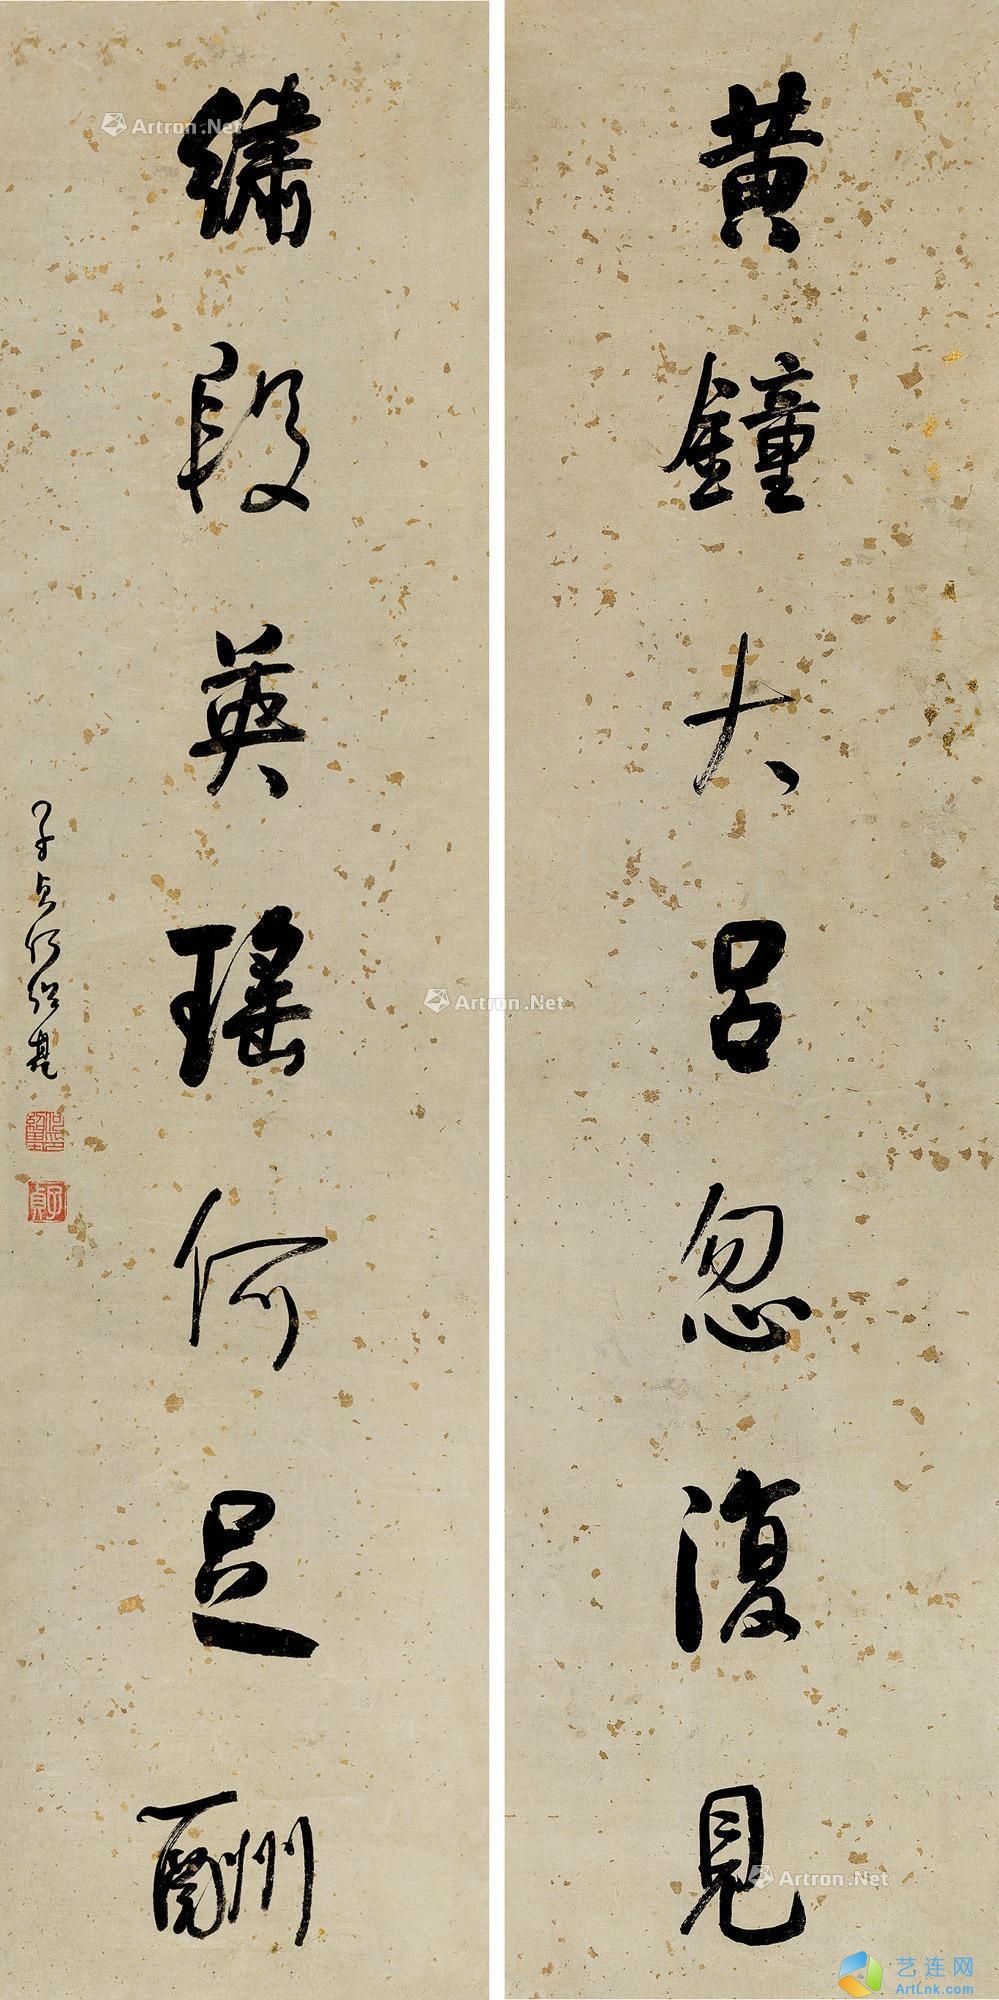 黄鐘大呂忽復見
繡段英瑤何足酬
子貞何紹基
何紹基印
子貞
Artron.Net
Artron.Net
Artron.Net
艺连网
ArtLnk.com